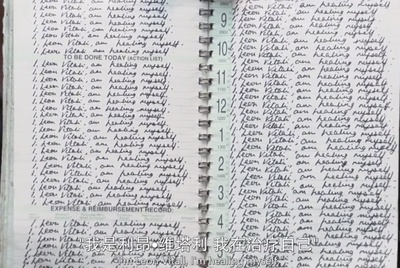 I, Leon Vitali, am healing myself.
I, Leon Vitali, am healing myself.
I, Leon Vitali, am healing myself.
I, Leon Vitali, am healing myself.
I, Leon Vitali, am healing myself.
I, Leon Vitali, am healing myself.
TO BE DONE TODAY (ACTION LIST)
I, Leon Vitali, am healing myself.
I, Leon Vitali, am healing myself.
I, Leon Vitali, am healing myself.
I, Leon Vitali, am healing myself.
I, Leon Vitali, am healing myself.
I, Leon Vitali, am healing myself.
I, Leon Vitali, am healing myself.
I, Leon Vitali, am healing myself.
I, Leon Vitali, am healing myself.
I, Leon Vitali, am healing myself.
I, Leon Vitali, am healing myself.
I, Leon Vitali, am healing myself.
I, Leon Vitali, am healing myself.
I, Leon Vitali, am healing myself.
EXPENSE & REIMBURSEMENT RECORD
I, Leon Vitali, am healing myself.
I, Leon Vitali, am healing myself.
9
10
11
12
1
2
3
4
I, Leon Vitali, am healing myself.
I, Leon Vitali, am healing myself.
I, Leon Vitali, am healing myself.
I, Leon Vitali, am healing myself.
I, Leon Vitali, am healing myself.
I, Leon Vitali, am healing myself.
I, Leon Vitali, am healing myself.
I, Leon Vitali, am healing myself.
I, Leon Vitali, am healing myself.
I, Leon Vitali, am healing myself.
I, Leon Vitali, am healing myself.
I, Leon Vitali, am healing myself.
I, Leon Vitali, am healing myself.
I, Leon Vitali, am healing myself.
I, Leon Vitali, am healing myself.
I, Leon Vitali, am healing myself.
I, Leon Vitali, am healing myself.
I, Leon Vitali, am healing myself.
I, Leon Vitali, am healing myself.
I, Leon Vitali, am healing myself.
I, Leon Vitali, am healing myself.
I, Leon Vitali, am healing myself.
I, Leon Vitali, am healing myself.
我是利昂·维塔利 我在治疗自己
Leon Vitali, I'm healing myself